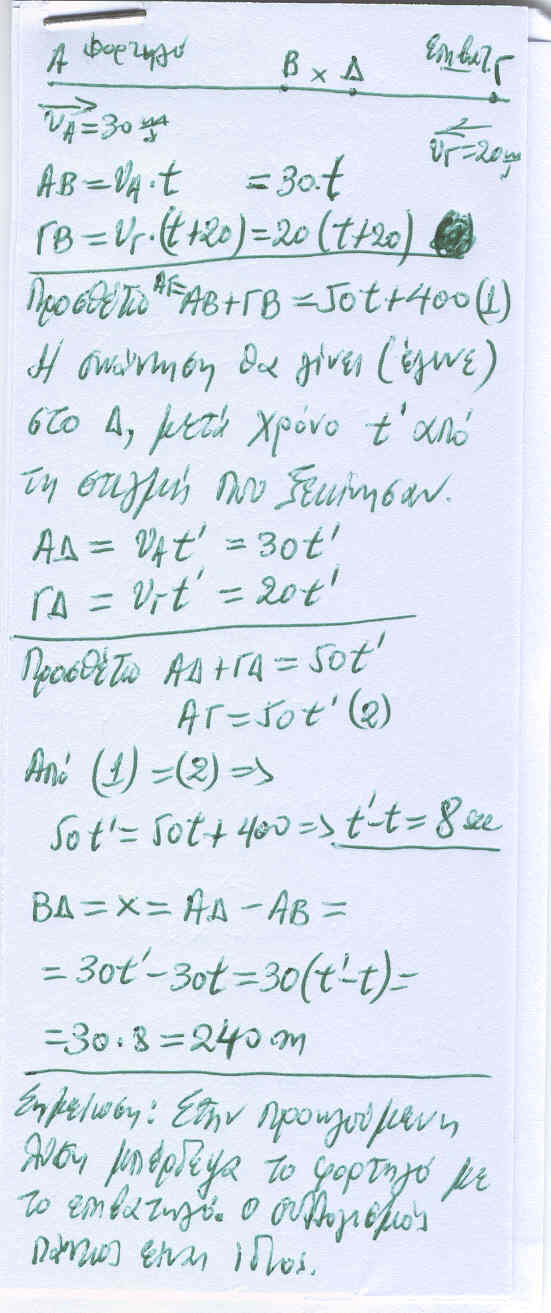 Α φορτηγό Β x Δ Επιβατ. Γ
υΑ=30 m/s υΓ=20 m/s
ΑΒ=υΑ·t =30.t
ΓΒ=υΓ·(t+20)=20(t+20)
Προσθέτω ΑΓ=ΑΒ+ΓΒ=50t+400(1)
Η συνάντηση θα γίνει (έγινε)
στο Δ, μετά χρόνο t' από
τη στιγμή που ξεκίνησαν.
ΑΔ = υΑt' = 30t'
ΓΔ = υΓt' = 20t'
Προσθέτω ΑΔ+ΓΔ=50t'
ΑΓ=50t'(2)
Από (1)=(2)=>
50t'=50t+400=> t'-t=8 sec
ΒΔ=x=ΑΔ-ΑΒ=
=30t'-30t=30(t'-t)=
=30.8=240m
Σημείωση: Στην προηγούμενη
λύση μπέρδεψα το φορτηγό με
το επιβατηγό. ο συλλογισμός
πάντως είναι ίδιος.